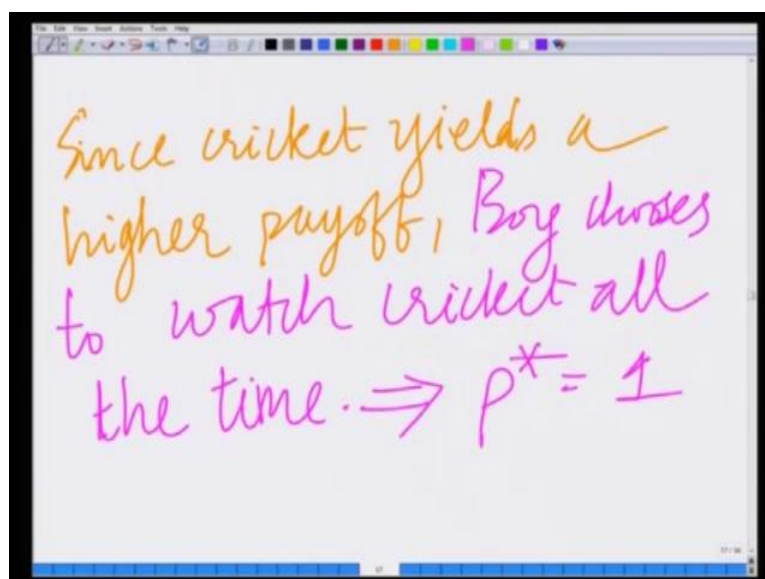 File Edit View Insert Actions Tools Help
Since cricket yields a
higher payoff, Boy chooses
to watch cricket all
the time. ⇒ p* = 1
17